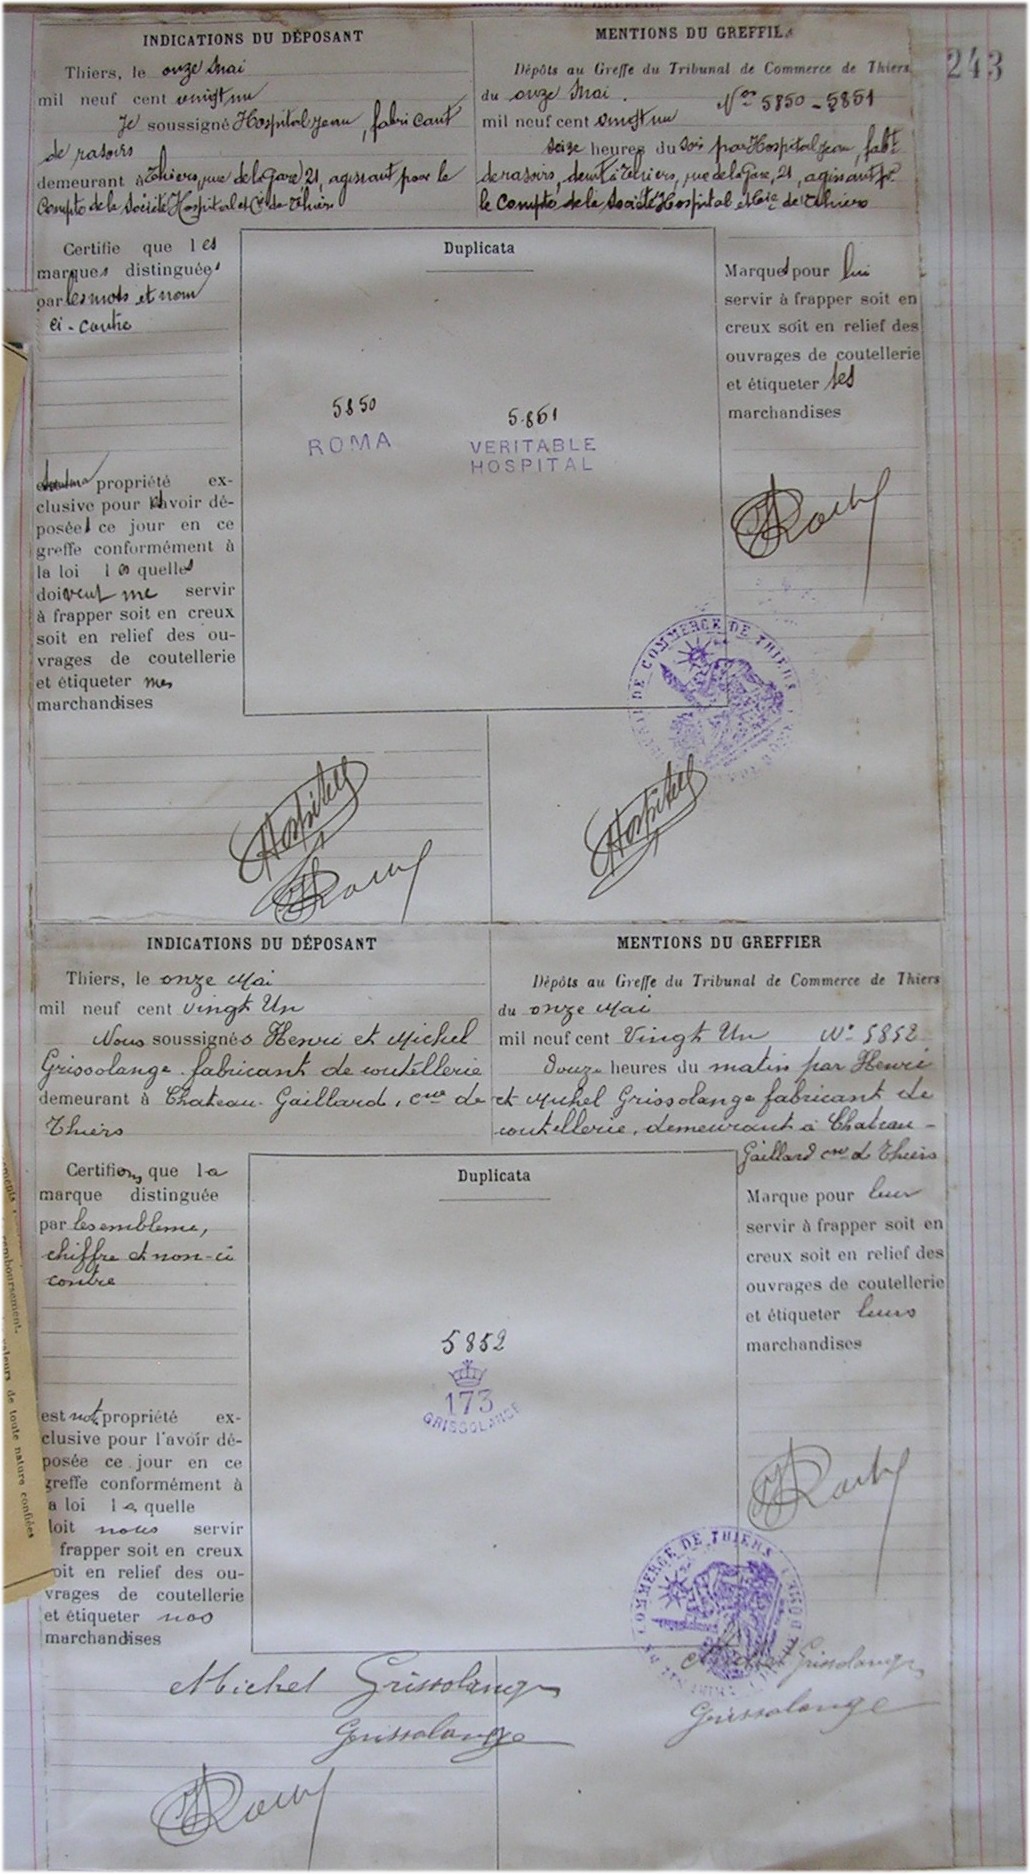 243
INDICATIONS DU DÉPOSANT
Thiers, le onze Mai
mil neuf cent vingt un
Je soussigné Hospital Jean, fabricant
de rasoirs
demeurant à Thiers, rue de la Gare, 21, agissant pour le
Compte de la Société Hospital et Cie de Thiers
MENTIONS DU GREFFIE
Dépôts au Greffe du Tribunal de Commerce de Thiers
du onze Mai. Nos 5850-5851
mil neuf cent vingt un
seize heures du soir par Hospital Jean, fabt
de rasoirs, demt à Thiers, rue de la Gare, 21, agissant pr
le Compte de la Société Hospital et Cie de Thiers
Certifie que les
marques distinguées
par les mots et nom
ci-contre
propriété ex-
clusive pour avoir dé-
posées ce jour en ce
greffe conformément à
la loi lesquelles
doivent me servir
à frapper soit en creux
soit en relief des ou-
vrages de coutellerie
et étiqueter mes
marchandises
Duplicata
5850
ROMA
5.851
VERITABLE
HOSPITAL
Marques pour lui
servir à frapper soit en
creux soit en relief des
ouvrages de coutellerie
et étiqueter ses
marchandises
DE COMMERCE DE THIERS
Hospital
Hospital
INDICATIONS DU DÉPOSANT
Thiers, le onze Mai
mil neuf cent vingt Un
Nous soussignés Henri et Michel
Grissolange fabricant de coutellerie
demeurant à Chateau-Gaillard, cne de
Thiers
MENTIONS DU GREFFIER
Dépôts au Greffe du Tribunal de Commerce de Thiers
du onze Mai
mil neuf cent Vingt Un No 5852
Douze heures du matin par Henri
et Michel Grissolange fabricant de
coutellerie, demeurant à Chateau-
Gaillard cne de Thiers
Certifions que la
marque distinguée
par les embleme,
chiffre et nom-ci
contre
est not propriété ex-
clusive pour l'avoir dé-
posée ce jour en ce
greffe conformément à
a loi laquelle
doit nous servir
frapper soit en creux
oit en relief des ou-
vrages de coutellerie
et étiqueter nos
marchandises
Duplicata
5852
173
GRISSOLANGE
Marque pour leur
servir à frapper soit en
creux soit en relief des
ouvrages de coutellerie
et étiqueter leurs
marchandises
DE COMMERCE DE THIERS
Michel Grissolange
Grissolange
Michel Grissolange
Grissolange
remboursement.
valeurs de toute nature confiées